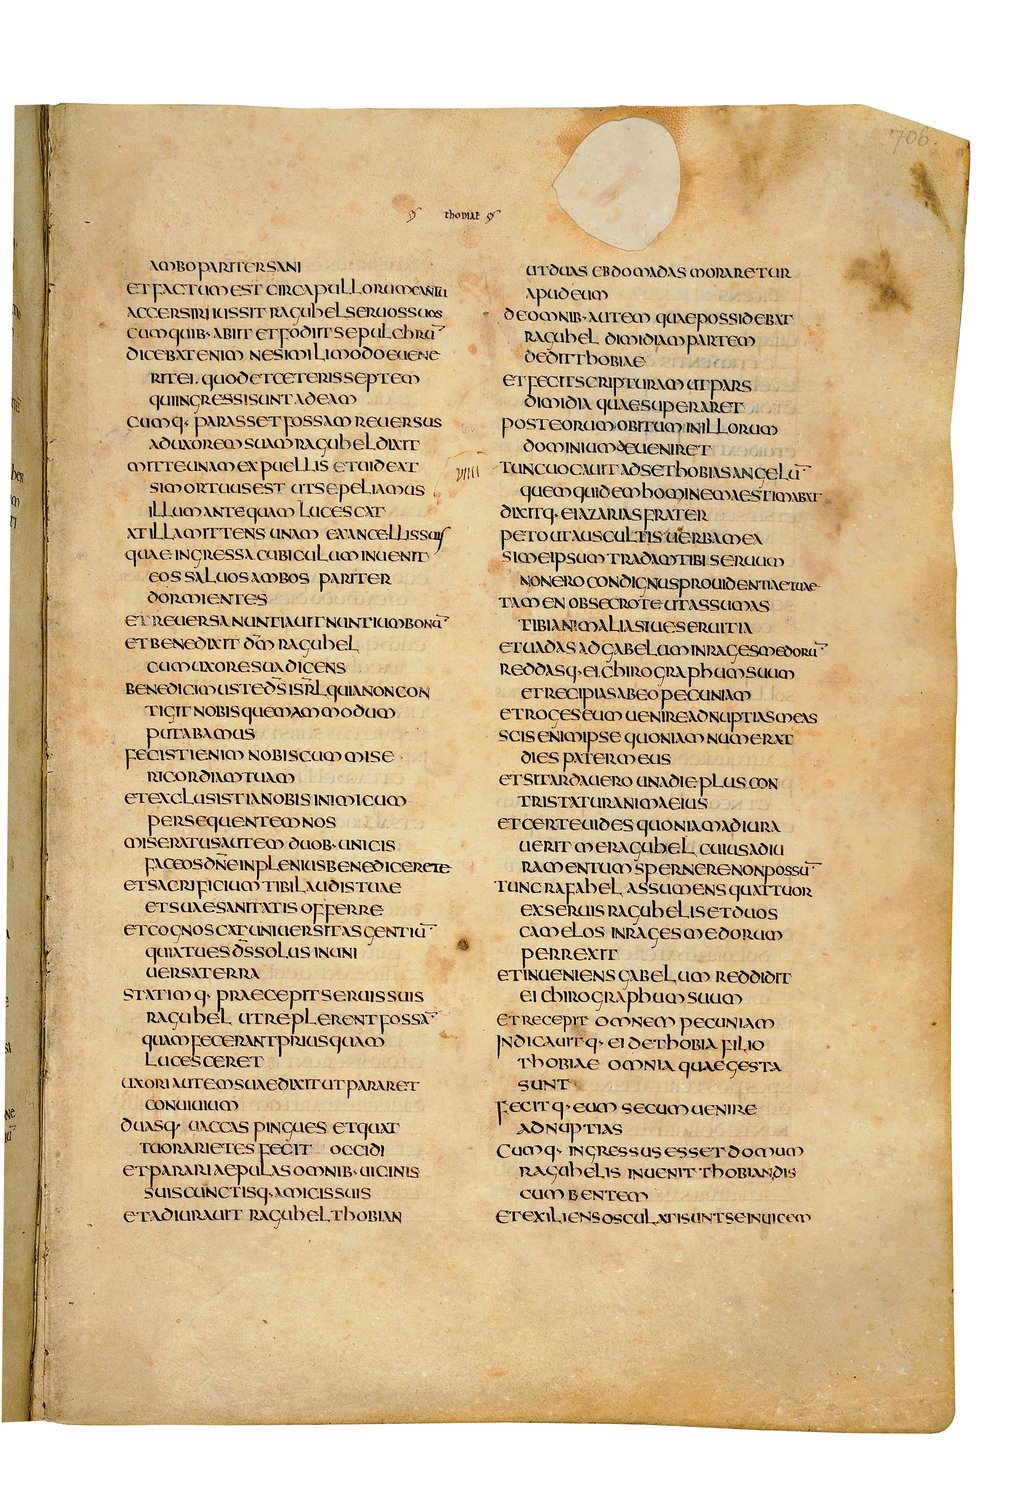 706.
THOBIAE
AMBO PARITER SANI
ET FACTUM EST CIRCA PULLORUM CANTU
ACCERSIRI IUSSIT RAGUHEL SERUOS SUOS
CUM QUIB· ABIIT ET FODIIT SEPULCHRŪ
DICEBAT ENIM NE SIMILI MODO EUENE
RIT EI· QUOD ET CETERIS SEPTEM
QUI INGRESSI SUNT AD EAM
CUMQ· PARASSET FOSSAM REUERSUS
AD UXOREM SUAM RAGUHEL DIXIT
MITTE UNAM EX PUELLIS ET UIDEAT
SI MORTUUS EST UT SEPELIAM US
ILLUM ANTEQUAM LUCESCAT
AT ILLA MITTENS UNAM EX ANCELLIS SUIS
QUAE INGRESSA CUBICULUM INUENIT
EOS SALUOS AMBOS PARITER
DORMIENTES
ET REUERSA NUNTIAUIT NUNTIUM BONŪ
ET BENEDIXIT DM̄ RAGUHEL
CUM UXORE SUA DICENS
BENEDICIMUS TE DS̄ ISRL̄ QUIA NON CON
TIGIT NOBIS QUEMAMMODUM
PUTABAMUS
FECISTI ENIM NOBISCUM MISE
RICORDIAM TUAM
ET EXCLUSISTI A NOBIS INIMICUM
PERSEQUENTEM NOS
MISERATUS AUTEM DUOB· UNICIS
FAC EOS DN̄E IN PLENIUS BENEDICERE TE
ET SACRIFICIUM TIBI LAUDIS TUAE
ET SUAE SANITATIS OFFERRE
ET COGNOSCAT UNIUERSITAS GENTIŪ
QUIA TU ES DS̄ SOLUS IN UNI
UERSA TERRA
STATIMQ· PRAECEPIT SERUIS SUIS
RAGUHEL UT REPLERENT FOSSĀ
QUAM FECERANT PRIUSQUAM
LUCESCERET
UXORI AUTEM SUAE DIXIT UT PARARET
CONUIUIUM
DUASQ· UACCAS PINGUES ET QUAT
TUOR ARIETES FECIT OCCIDI
ET PARARI AEPULAS OMNIB· UICINIS
SUIS CUNCTISQ· AMICIS SUIS
ET ADIURAUIT RAGUHEL THOBIAN
UT DUAS EBDOMADAS MORARETUR
APUD EUM
DE OMNIB· AUTEM QUAE POSSIDEBAT
RAGUHEL DIMIDIAM PARTEM
DEDIT THOBIAE
ET FECIT SCRIPTURAM UT PARS
DIMIDIA QUAE SUPERARET
POST EORUM OBITUM IN ILLORUM
DOMINIUM DEUENIRET
VIIII TUNC UOCAUIT AD SE THOBIAS ANGELŪ
QUEM QUIDEM HOMINEM AESTIMABAT
DIXITQ· EI AZARIAS FRATER
PETO UT AUSCULTIS UERBA MEA
SI ME IPSUM TRADAM TIBI SERUUM
NON ERO CONDIGNUS PROUIDENTIAE TUAE
TAMEN OBSECRO TE UT ASSUMAS
TIBI ANIMALIA SIUE SERUITIA
ET UADAS AD GABELUM IN RAGES MEDORŪ
REDDASQ· EI CHIROGRAPHUM SUUM
ET RECIPIAS AB EO PECUNIAM
ET ROGES EUM UENIRE AD NUPTIAS MEAS
SCIS ENIM IPSE QUONIAM NUMERAT
DIES PATER MEUS
ET SI TARDAUERO UNA DIE PLUS CON
TRISTATUR ANIMA EIUS
ET CERTE UIDES QUONIAM ADIURA
UERIT ME RAGUHEL CUIUS ADIU
RAMENTUM SPERNERE NON POSSŪ
TUNC RAFAHEL ASSUMENS QUATTUOR
EX SERUIS RAGUHELIS ET DUOS
CAMELOS IN RAGES MEDORUM
PERREXIT
ET INUENIENS GABELUM REDDIDIT
EI CHIROGRAPHUM SUUM
ET RECEPIT OMNEM PECUNIAM
INDICAUITQ· EI DE THOBIA FILIO
THOBIAE OMNIA QUAE GESTA
SUNT
FECITQ· EUM SECUM UENIRE
AD NUPTIAS
CUMQ· INGRESSUS ESSET DOMUM
RAGUHELIS INUENIT THOBIAN DIS
CUMBENTEM
ET EXILIENS OSCULATI SUNT SE INUICEM